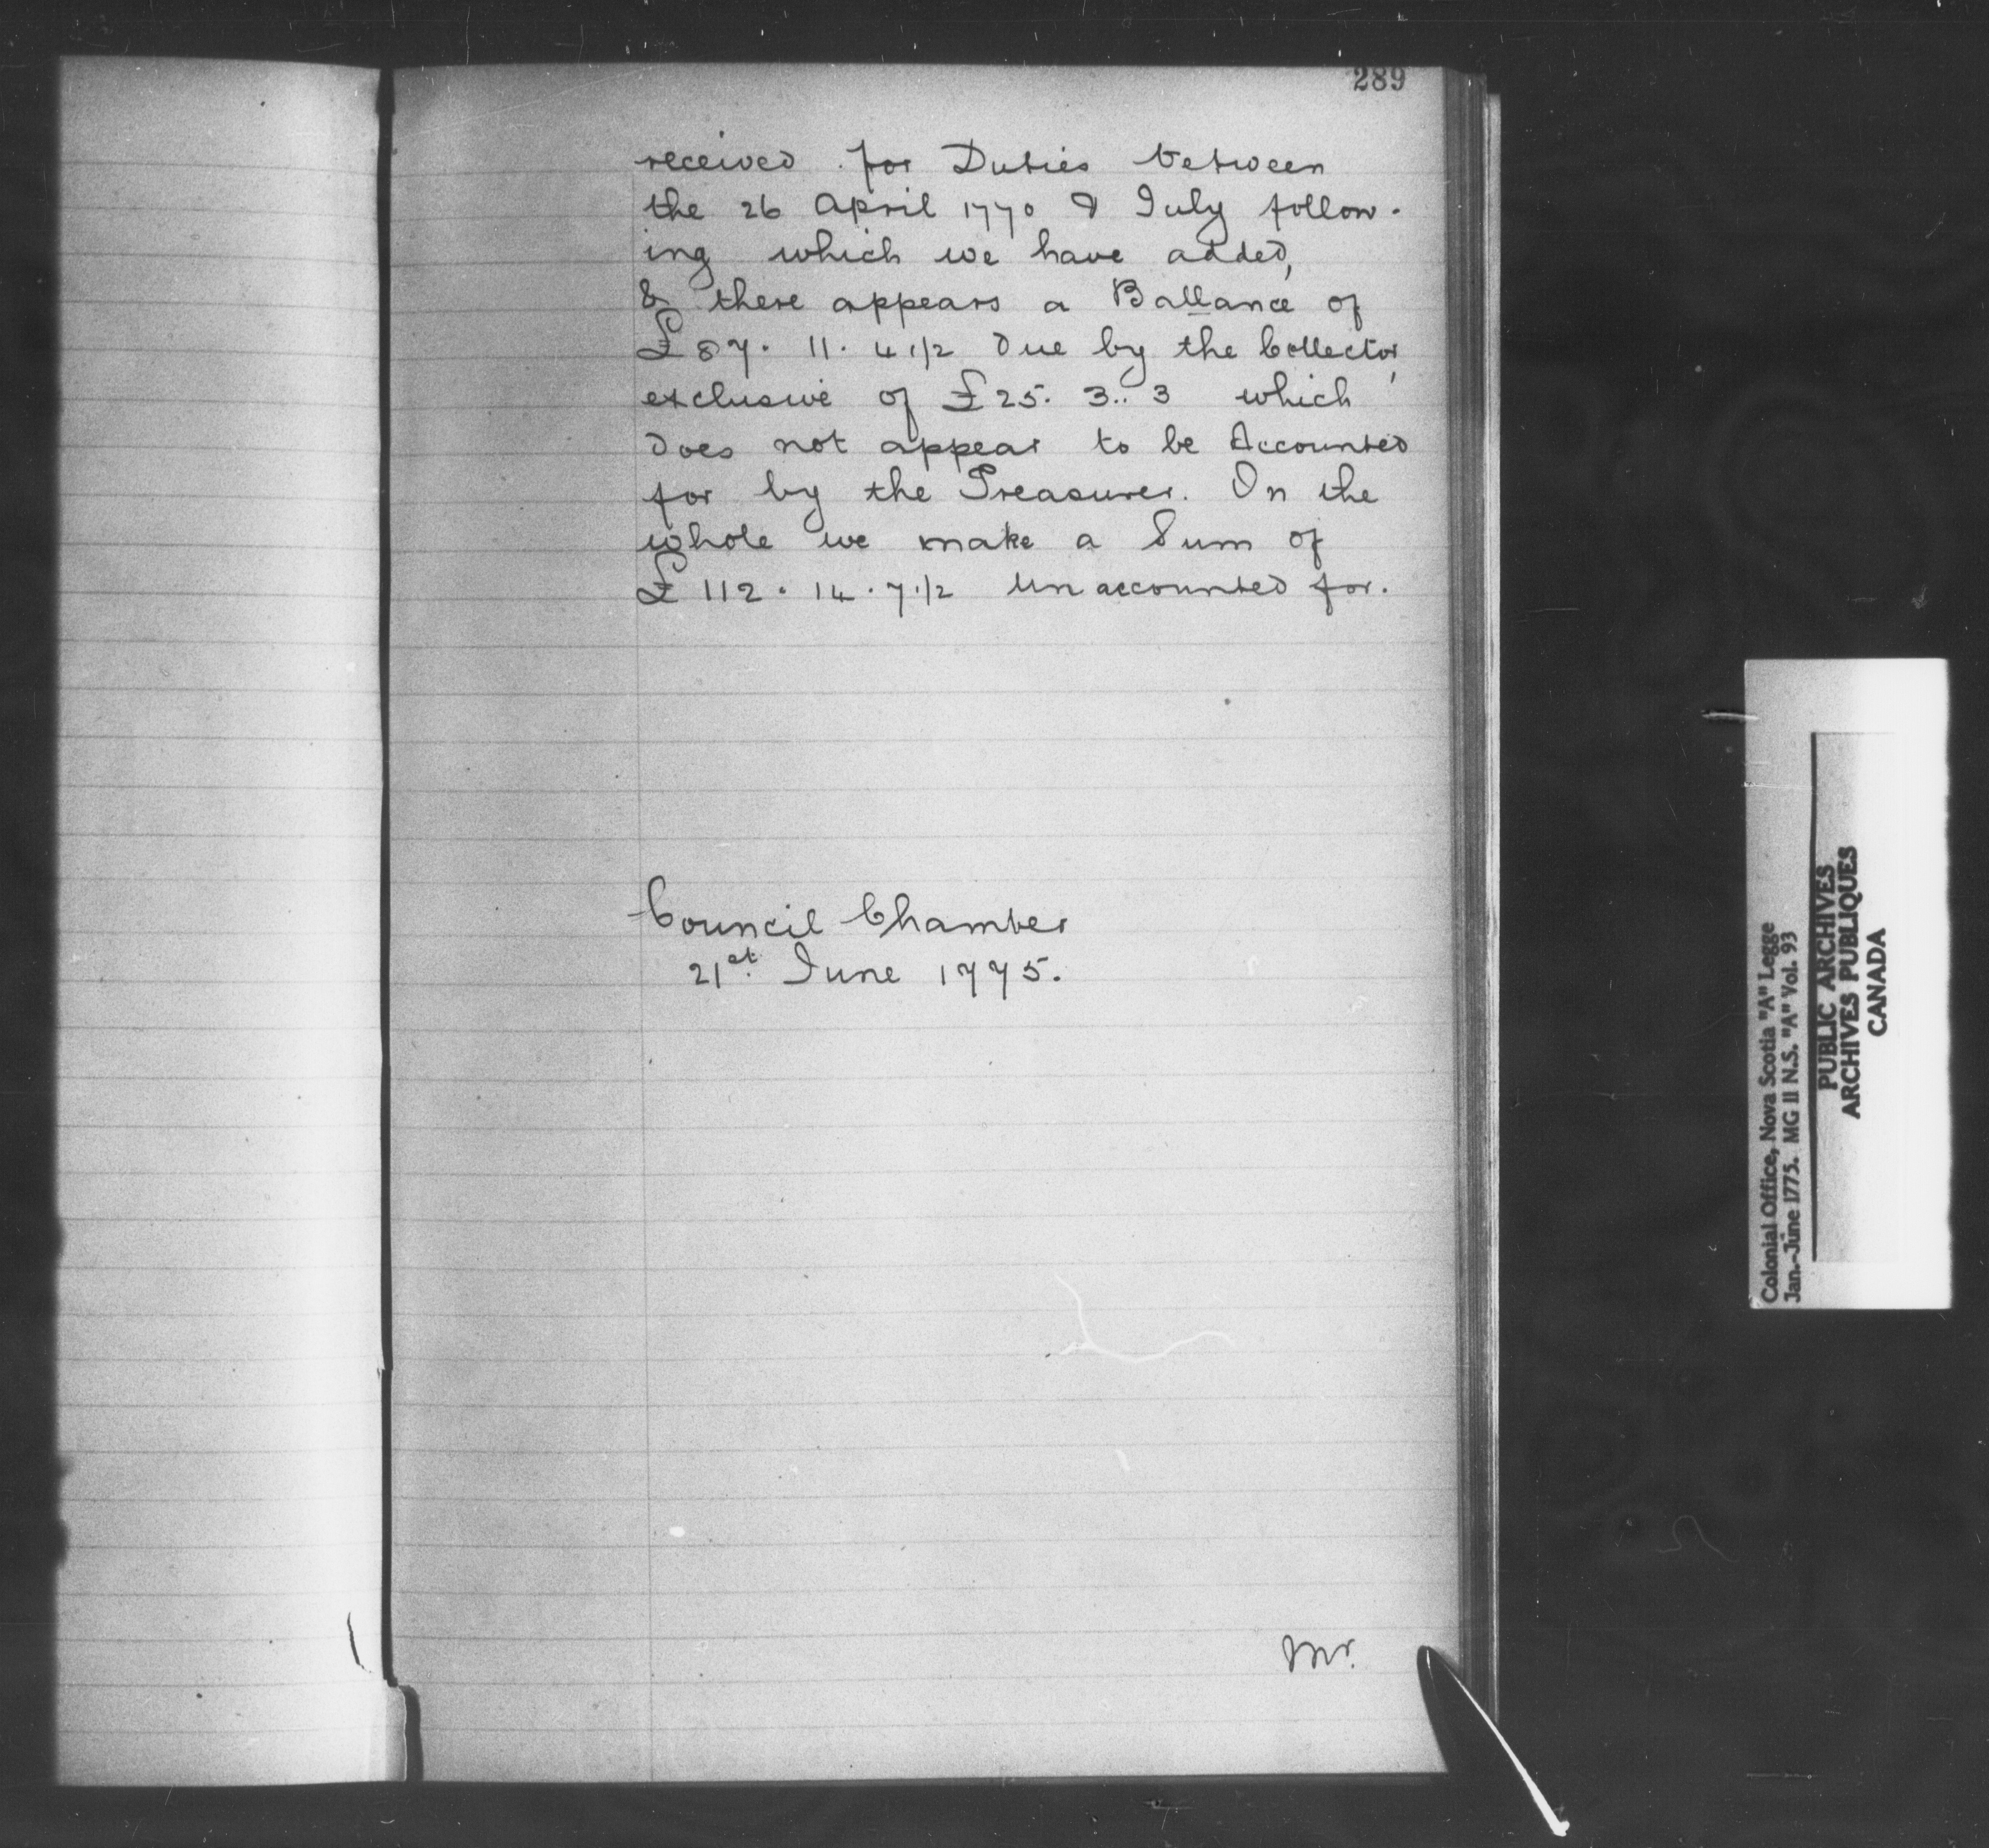 289
received for Duties between
the 26 April 1770 & July follow-
ing which we have added,
& there appears a Ballance of
£87. 11. 4 1/2 due by the Collector,
exclusive of £25. 3.. 3 which
does not appear to be Accounted
for by the Treasurer. On the
whole we make a Sum of
£112. 14. 7 1/2 Unaccounted for.
Council Chamber
21st. June 1775.
Mr.
Colonial Office, Nova Scotia "A" Legge
Jan.-June 1775. MG 11 N.S. "A" Vol. 93
PUBLIC ARCHIVES
ARCHIVES PUBLIQUES
CANADA